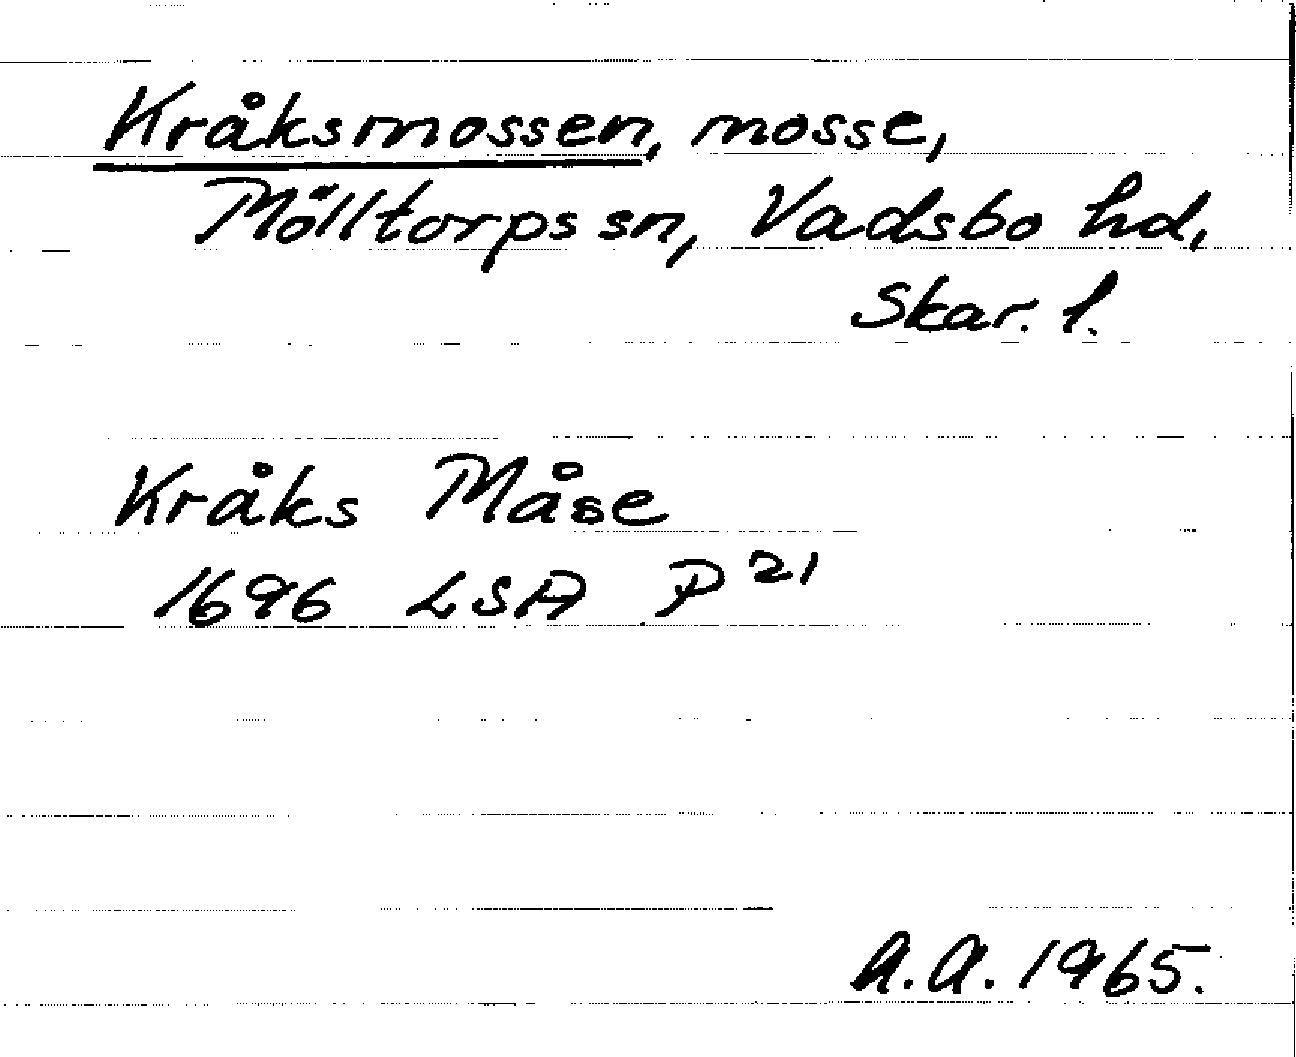 Kråksmossen, mosse,
Mölltorps sn, Vadsbo hd,
Skar. l.
Kråks Måse
1696 LSA P 21
A.A. 1965.